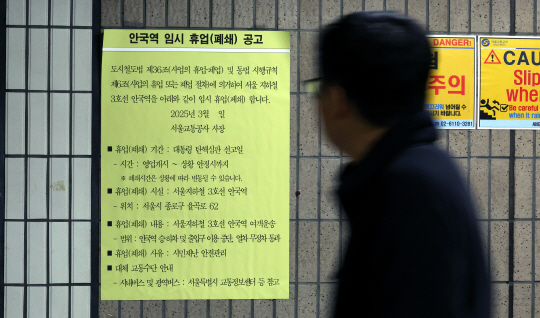 안국역 임시 휴업(폐쇄) 공고
도시철도법 제36조(사업의 휴업·폐업) 및 동법 시행규칙
제6조(사업의 휴업 또는 폐업 절차)에 의거하여 서울 지하철
3호선 안국역을 아래와 같이 임시 휴업(폐쇄) 합니다.
2025년 3월 일
서울교통공사 사장
■ 휴업(폐쇄) 기간 : 대통령 탄핵심판 선고일
- 시간 : 영업개시 ~ 상황 안정시까지
※ 폐쇄시간은 상황에 따라 변동될 수 있습니다.
■ 휴업(폐쇄) 시설 : 서울지하철 3호선 안국역
- 위치 : 서울시 종로구 율곡로 62
■ 휴업(폐쇄) 내용 : 서울지하철 3호선 안국역 여객운송
- 범위 : 안국역 승하차 및 출입구 이용 중단, 열차 무정차 통과
■ 휴업(폐쇄) 사유 : 시민재난 안전관리
■ 대체 교통수단 안내
- 시내버스 및 광역버스 : 서울특별시 교통정보센터 등 참고
DANGER
주의
넘어질 수
02-6110-3291
CAU
Slip
when
Be careful
when it rain